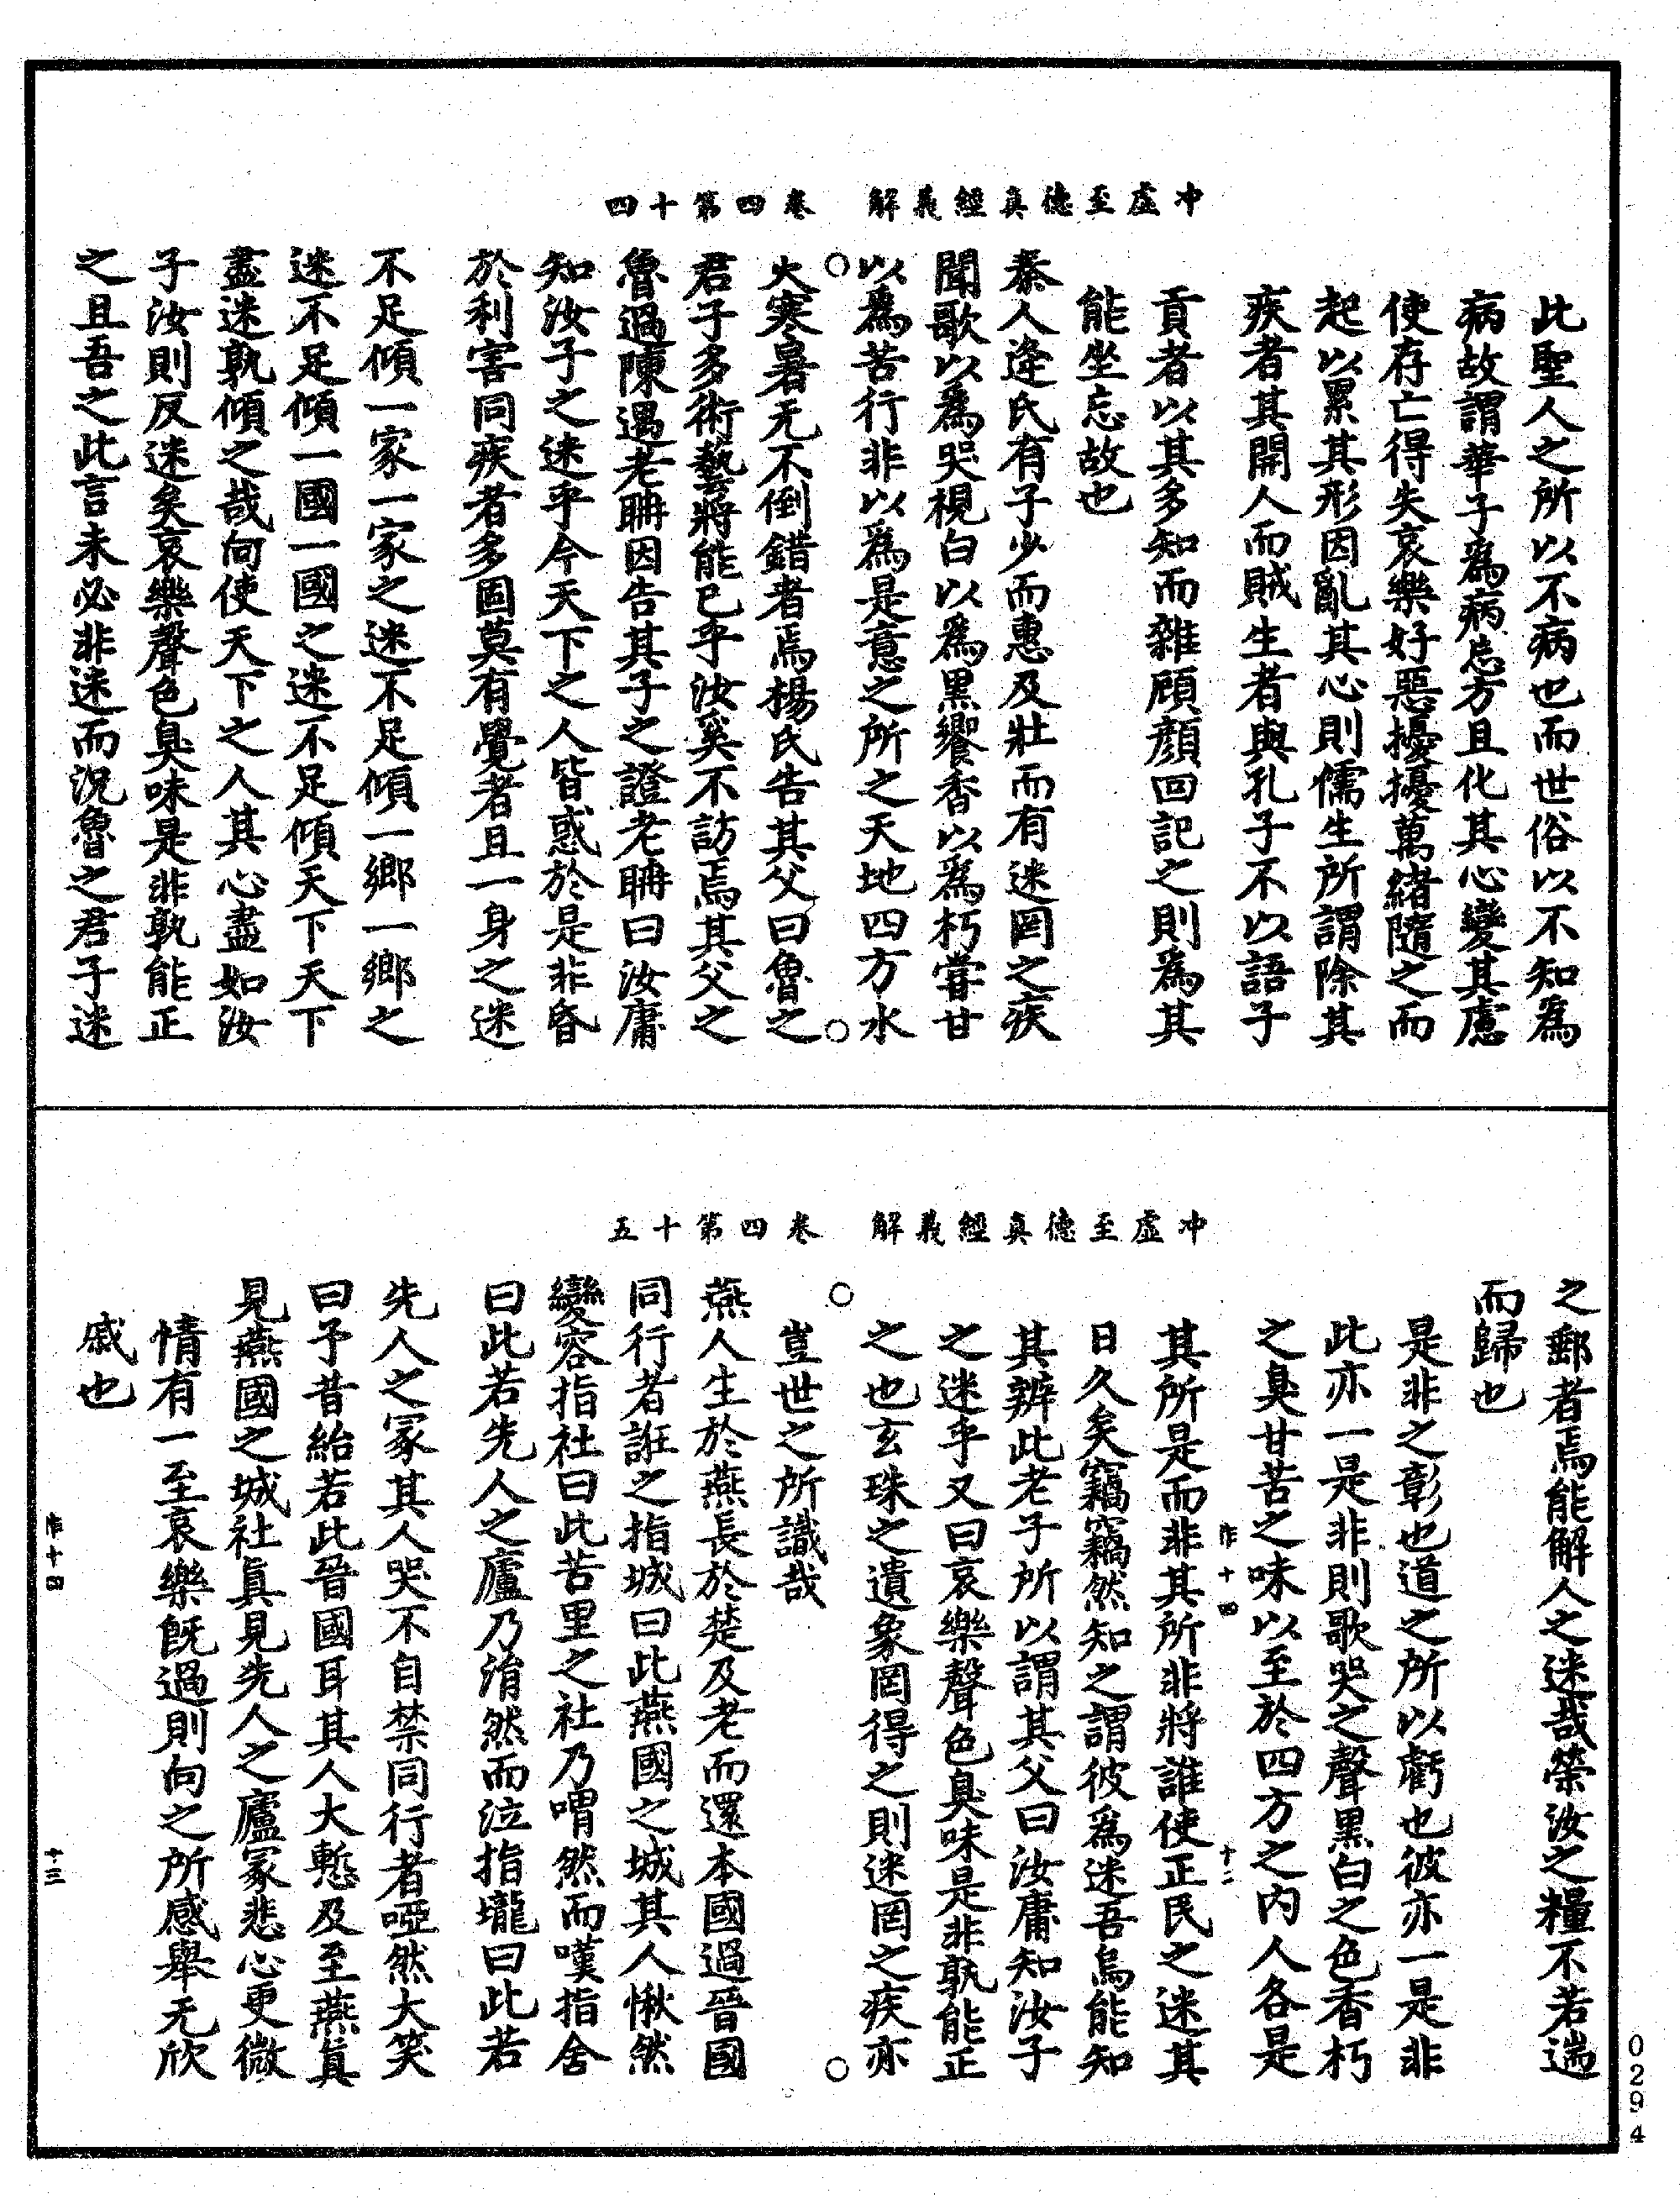 冲虛至德真經義解　卷四第十四
此聖人之所以不病也而世俗以不知為
病故謂華子為病忘方且化其心變其慮
使存亡得失哀樂好惡擾擾萬緒隨之而
起以累其形因亂其心則儒生所謂除其
疾者其開人而賊生者與孔子不以語子
貢者以其多知而雜頋顏回記之則為其
能坐忘故也
秦人逄氏有子少而惠及壯而有迷罔之疾
聞歌以為哭視白以為黑饗香以為朽甞甘
以為苦行非以為是意之所之天地四方水
火寒暑无不倒錯者焉楊氏告其父曰魯之
君子多術藝將能已乎汝奚不訪焉其父之
魯過陳遇老聃因告其子之證老聃曰汝庸
知汝子之迷乎今天下之人皆惑於是非昏
於利害同疾者多固莫有覺者且一身之迷
不足傾一家一家之迷不足傾一鄉一鄉之
迷不足傾一國一國之迷不足傾天下天下
盡迷孰傾之哉向使天下之人其心盡如汝
子汝則反迷矣哀樂聲色臭味是非孰能正
之且吾之此言未必非迷而況魯之君子迷
冲虛至德真經義解　卷四第十五
之郵者焉能解人之迷哉榮汝之糧不若遄
而歸也
是非之彰也道之所以虧也彼亦一是非
此亦一是非則歌哭之聲黑白之色香朽
之臭甘苦之味以至於四方之內人各是
作十四　十二
其所是而非其所非將誰使正民之迷其
日久矣竊竊然知之謂彼為迷吾烏能知
其辨此老子所以謂其父曰汝庸知汝子
之迷乎又曰哀樂聲色臭味是非孰能正
之也玄珠之遺象罔得之則迷罔之疾亦
豈世之所識哉
燕人生於燕長於楚及老而還本國過晉國
同行者誑之指城曰此燕國之城其人愀然
變容指社曰此若里之社乃喟然而嘆指舍
曰此若先人之廬乃涓然而泣指壠曰此若
先人之冢其人哭不自禁同行者啞然大笑
曰予昔紿若此晉國耳其人大慙及至燕真
見燕國之城社真見先人之廬冢悲心更微
情有一至哀樂旣過則向之所感舉无欣
戚也
作十四　十三
0294